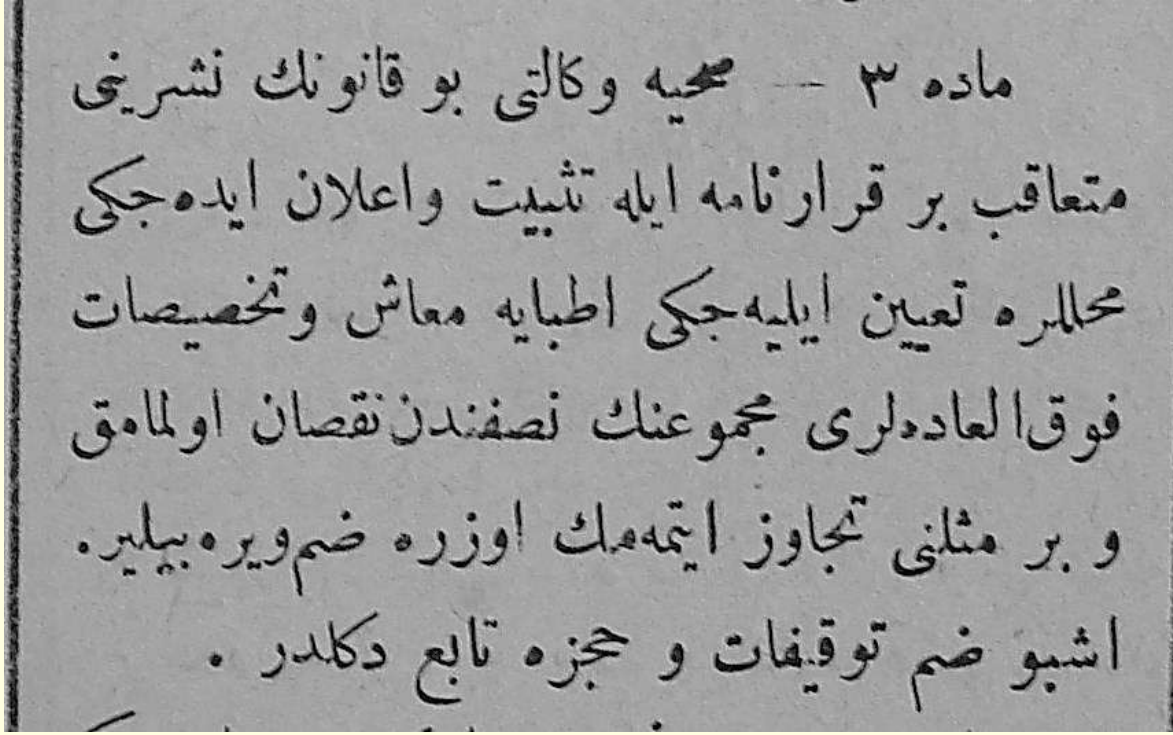 ماده ۳ — صحیه وكالتی بو قانونك نشرینی
متعاقب بر قرارنامه ایله تثبیت واعلان ایده‌جكی
محللره تعیین ایلیه‌جكی اطبایه معاش وتخصیصات
فوق‌العاده‌لری مجموعنك نصفندن نقصان اولمامق
و بر مثلنی تجاوز ایتمه‌مك اوزره ضم ویره‌بیلیر.
اشبو ضم توقیفات و حجزه تابع دكلدر .